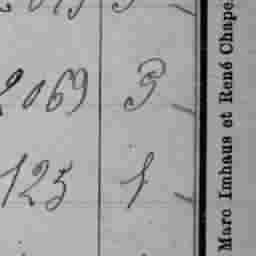 2069 3
125 1
Marc Imhaus et René Chape